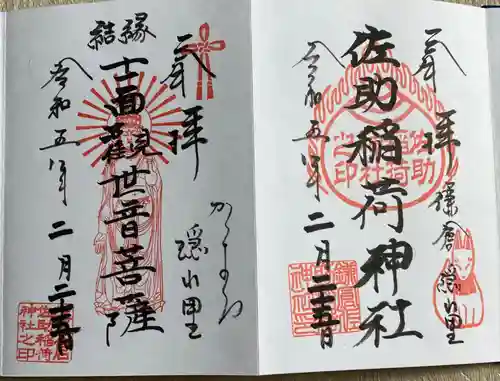 奉拝
鎌倉 隠れ里
佐助稲荷神社
令和五年 二月二十五日
佐助稲荷神社之印
奉拝
かまくら
隠れ里
縁結
十一面觀世音菩薩
令和五年 二月二十五日
佐助稲荷神社之印